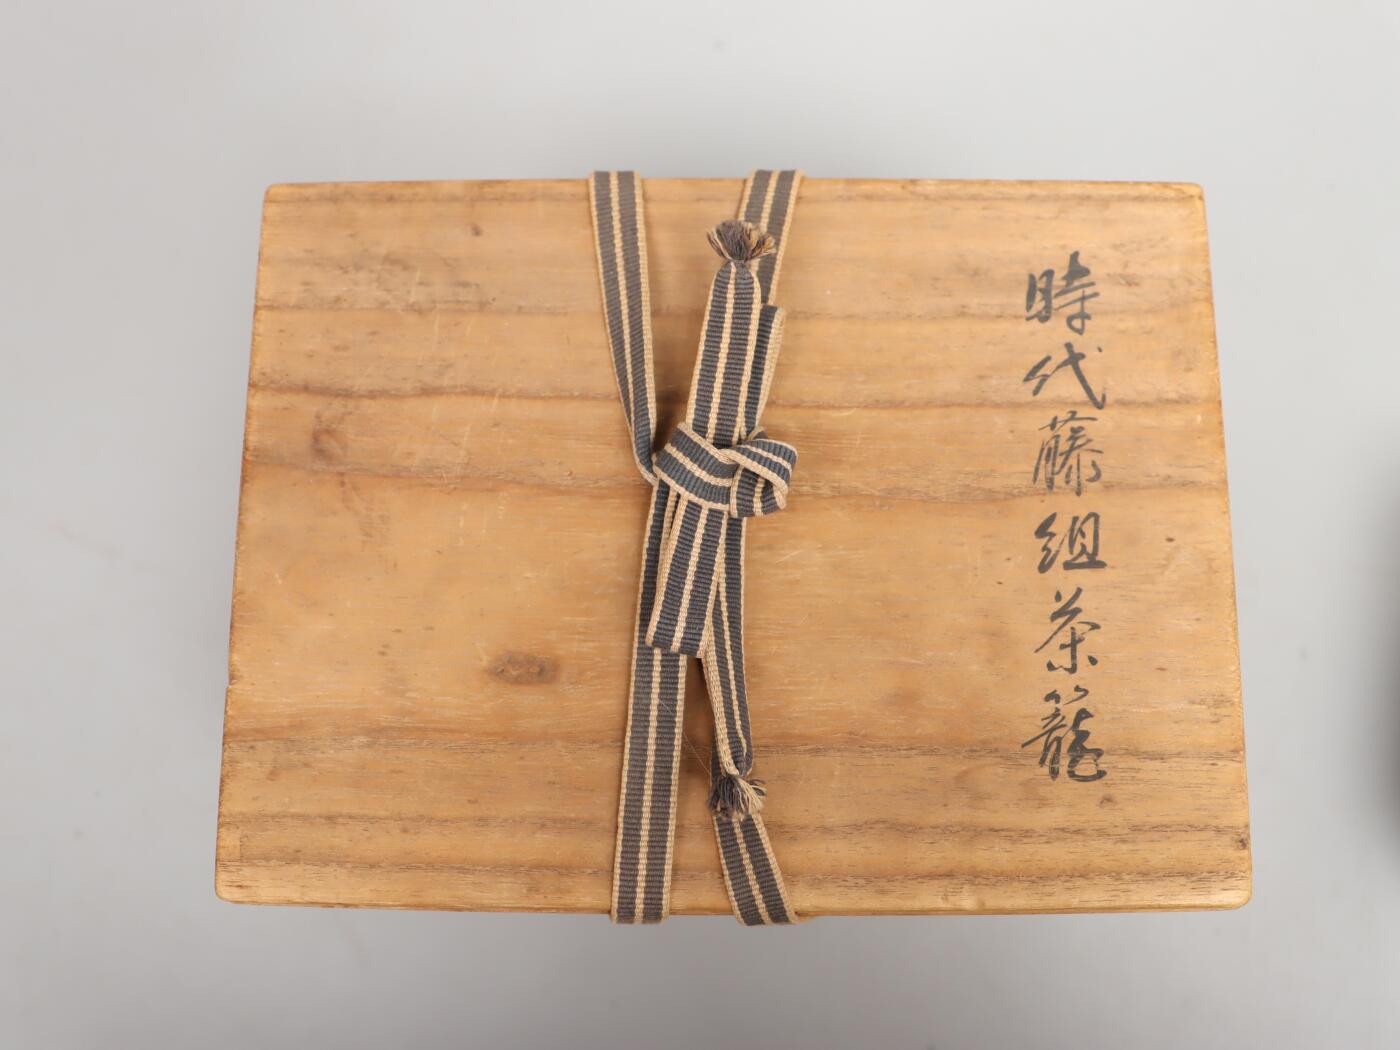 時代藤組茶籠